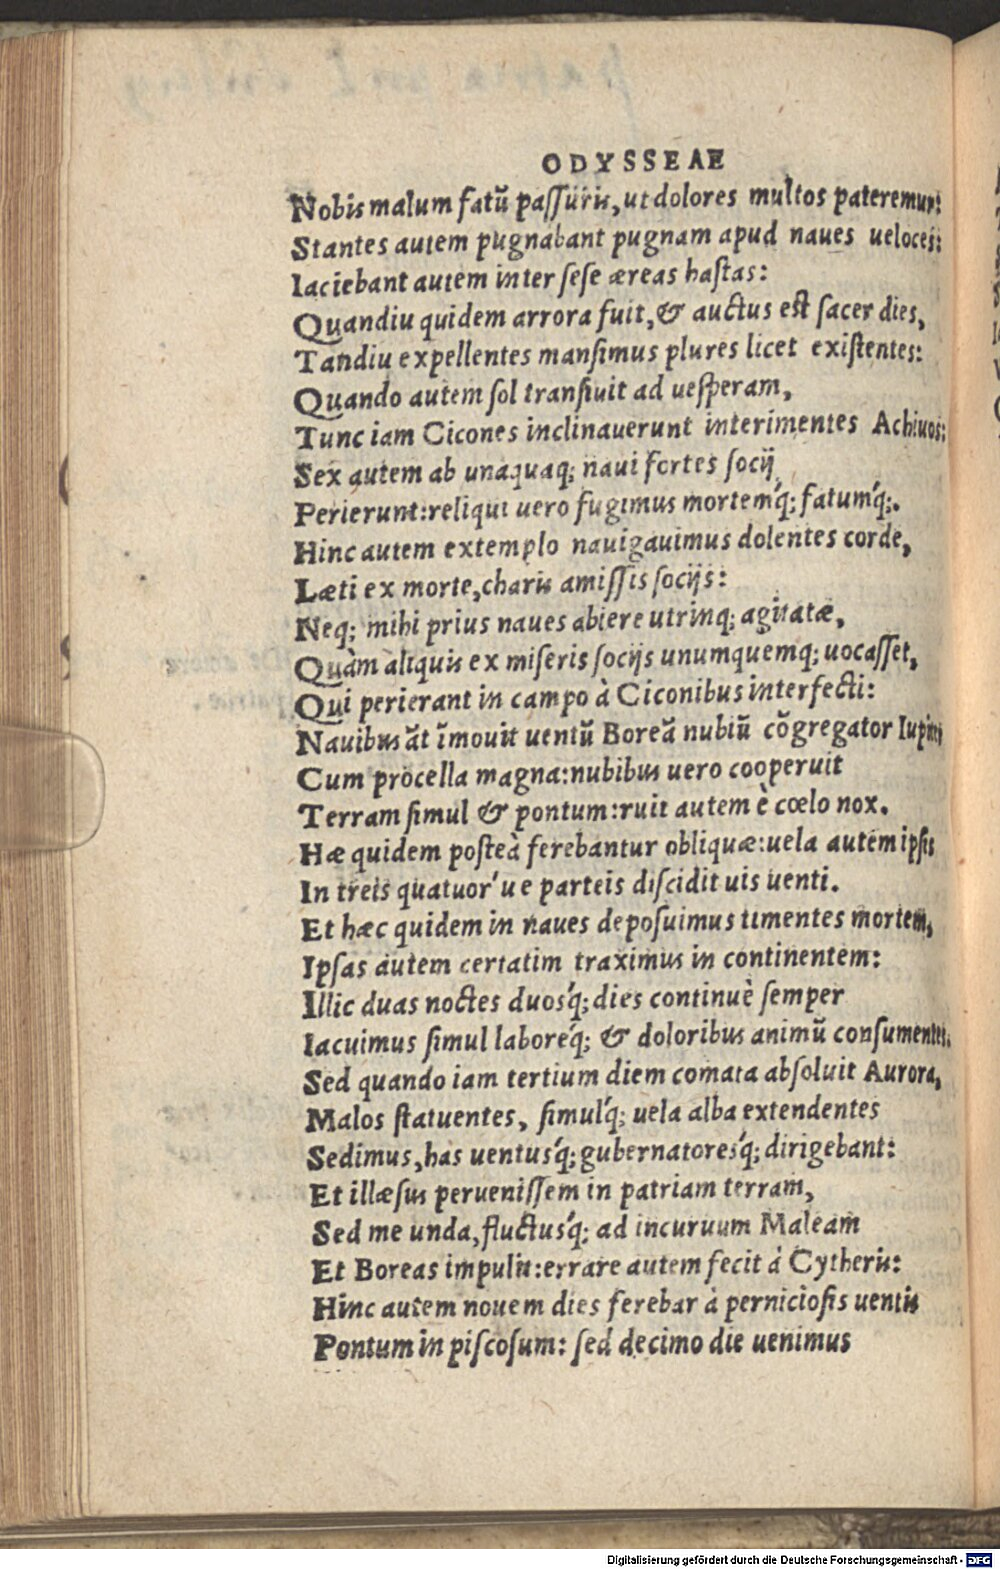 ODYSSEAE
Nobis malum fatū paſſuris, ut dolores multos pateremur:
Stantes autem pugnabant pugnam apud naues ueloces:
Iaciebant autem inter ſeſe æreas haſtas:
Quandiu quidem arrora fuit, & auctus eſt ſacer dies,
Tandiu expellentes manſimus plures licet exiſtentes:
Quando autem ſol tranſiuit ad ueſperam,
Tunc iam Cicones inclinauerunt interimentes Achiuos:
Sex autem ab unaquaq; naui fortes ſocij
Perierunt: reliqui uero fugimus mortemq́; fatumq́;.
Hinc autem extemplo nauigauimus dolentes corde,
Læti ex morte, charis amiſſis ſocijs:
Neq; mihi prius naues abiere utrinq; agitatæ,
Quàm aliquis ex miſeris ſocijs unumquemq; uocaſſet,
Qui perierant in campo à Ciconibus interfecti:
Nauibus āt īmouit uentū Boreā nubiū cōgregator Iupiter
Cum procella magna: nubibus uero cooperuit
Terram ſimul & pontum: ruit autem è cœlo nox.
Hæ quidem poſteà ferebantur obliquæ: uela autem ipſis
In treis quatuor'ue parteis diſcidit uis uenti.
Et hæc quidem in naues depoſuimus timentes mortem,
Ipſas autem certatim traximus in continentem:
Illic duas noctes duosq́; dies continuè ſemper
Iacuimus ſimul laboreq́; & doloribus animū conſumentes.
Sed quando iam tertium diem comata abſoluit Aurora,
Malos ſtatuentes, ſimulq́; uela alba extendentes
Sedimus, has uentusq́; gubernatoresq́; dirigebant:
Et illæſus perueniſſem in patriam terram,
Sed me unda, fluctusq́; ad incuruum Maleam
Et Boreas impulit: errare autem fecit à Cytheris:
Hinc autem nouem dies ferebar à pernicioſis uentis
Pontum in piſcoſum: ſed decimo die uenimus
Digitalisierung gefördert durch die Deutsche Forschungsgemeinschaft - DFG